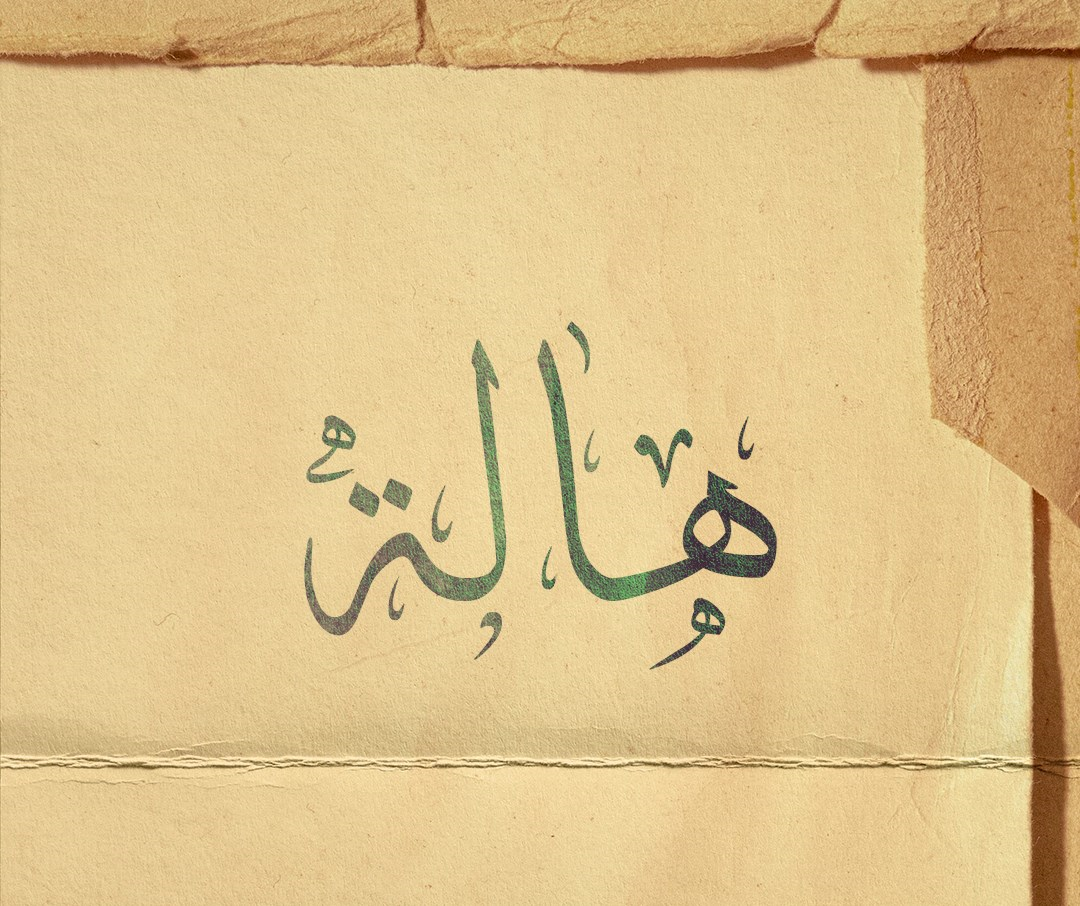 هالة